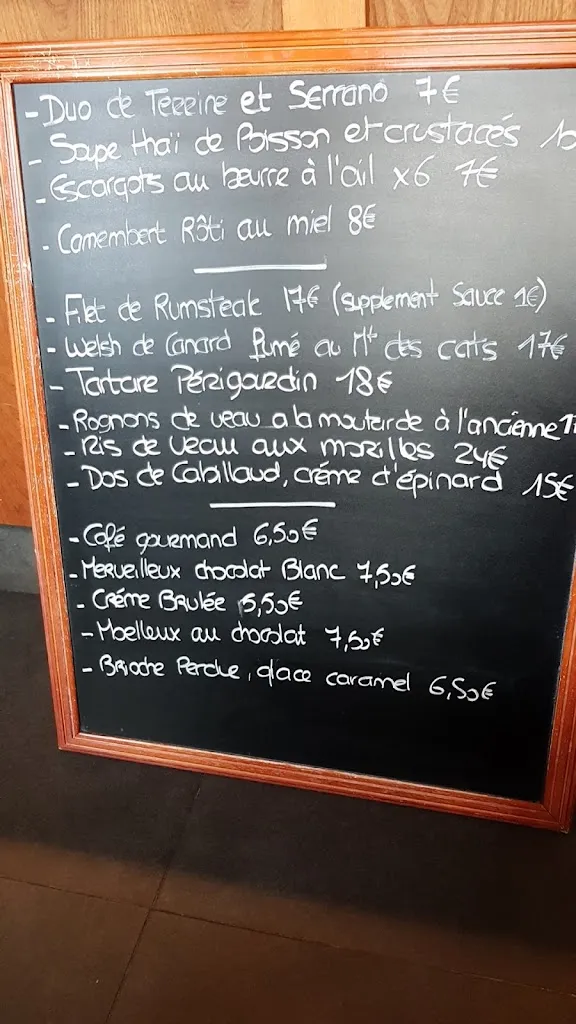 - Duo de Terrine et Serrano 7€
- Soupe thaï de Poisson et crustacés
- Escargots au beurre à l'ail x6 7€
- Camembert Rôti au miel 8€
- Filet de Rumsteak 17€ (supplement Sauce 1€)
- Welsh de Canard fumé au Mt des cats 17€
- Tartare Périgourdin 18€
- Rognons de veau a la moutarde à l'ancienne
- Ris de veau aux morilles 24€
- Dos de Cabillaud, créme d'épinard 15€
- Café gourmand 6,50€
- Merveilleux chocolat Blanc 7,50€
- Créme Brulée 5,50€
- Moelleux au chocolat 7,50€
- Brioche Perdue, glace caramel 6,50€